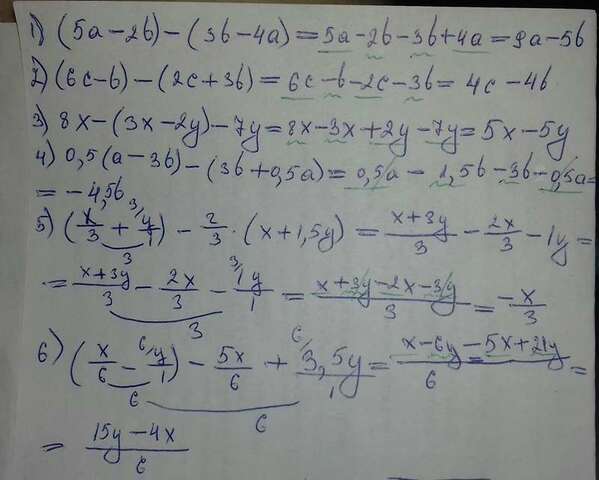 1) (5a-2b)-(3b-4a)=5a-2b-3b+4a=9a-5b
2) (6c-b)-(2c+3b)=6c-b-2c-3b=4c-4b
3) 8x-(3x-2y)-7y=8x-3x+2y-7y=5x-5y
4) 0,5(a-3b)-(3b+0,5a)=0,5a-1,5b-3b-0,5a=
=-4,5b
5) (x/3 + 3/y/1) - 2/3·(x+1,5y) = x+3y/3 - 2x/3 - 1y =
3
= x+3y/3 - 2x/3 - 3/1y/1 = x+3y-2x-3y/3 = -x/3
3
6) (x/6 - 6/y/1) - 5x/6 + 6/3,5y/1 = x-6y-5x+21y/6 =
6
6
= 15y-4x/6